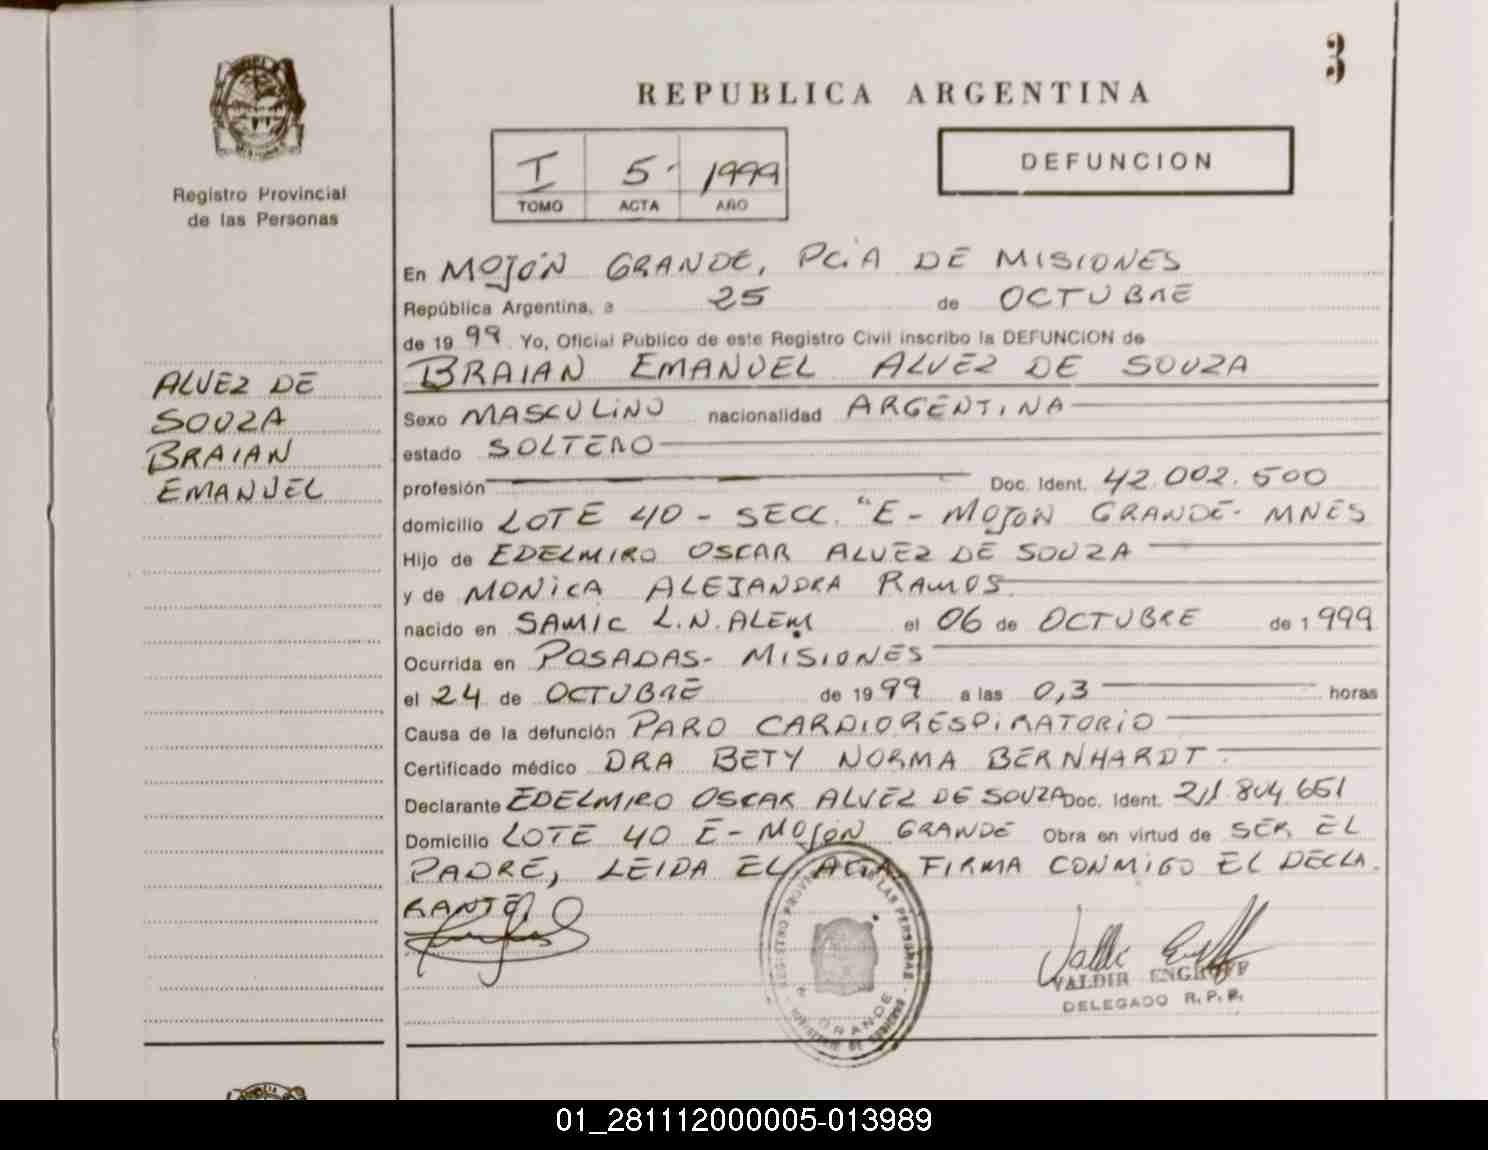 3
REPUBLICA ARGENTINA
Registro Provincial
de las Personas
I 5 1999
TOMO ACTA AÑO
DEFUNCION
ALVEZ DE
SOUZA
BRAIAN
EMANUEL
En MOJÓN GRANDE, PCiA DE MISIONES
República Argentina, a 25 de OCTUBRE
de 1999 Yo, Oficial Publico de este Registro Civil inscribo la DEFUNCION de
BRAIAN EMANUEL ALVEZ DE SOUZA
Sexo MASCULINO nacionalidad ARGENTINA
estado SOLTERO
profesión Doc. Ident. 42.002.500
domicilio LOTE 40 - SECC. "E - MOJON GRANDE - MNES
Hijo de EDELMIRO OSCAR ALVEZ DE SOUZA
y de MONICA ALEJANDRA RAMOS
nacido en SAMIC L.N. ALEM el 06 de OCTUBRE de 1999
Ocurrida en POSADAS - MISIONES
el 24 de OCTUBRE de 1999 a las 0,3 horas
Causa de la defunción PARO CARDIORESPIRATORIO
Certificado médico DRA BETY NORMA BERNHARDT.
Declarante EDELMIRO OSCAR ALVEZ DE SOUZA Doc. Ident.
Domicilio LOTE 40 E - MOJÓN GRANDE Obra en virtud de SER EL
PADRE, LEIDA EL ACTA, FIRMA CONMIGO EL DECLA-
RANTE
VALDIR ENGROFF
DELEGADO R.P.P.
01_281112000005-013989